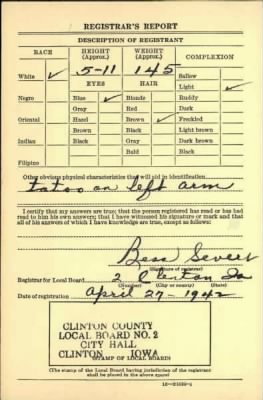 REGISTRAR'S REPORT
DESCRIPTION OF REGISTRANT
RACE HEIGHT (Approx.) WEIGHT (Approx.) COMPLEXION
5-11 145 Sallow
White ✓ EYES HAIR Light ✓
Negro Blue ✓ Blonde Ruddy
Gray Red Dark
Oriental Hazel Brown ✓ Freckled
Brown Black Light brown
Indian Black Gray Dark brown
Bald Black
Filipino
Other obvious physical characteristics that will aid in identification
tatoo on left arm
I certify that my answers are true; that the person registered has read or has had
read to him his own answers; that I have witnessed his signature or mark and that
all of his answers of which I have knowledge are true, except as follows:
Bess Severs
(Signature of registrar)
Registrar for Local Board 2 Clinton Ia
(Number) (City or county) (State)
Date of registration April 27-1942
CLINTON COUNTY
LOCAL BOARD NO. 2
CITY HALL
CLINTON, IOWA
(STAMP OF LOCAL BOARD)
(The stamp of the Local Board having jurisdiction of the registrant
shall be placed in the above space)